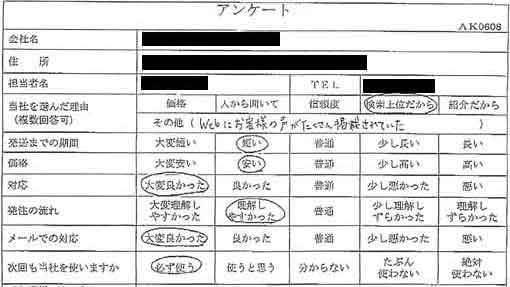 アンケート
AK0608
会社名
住 所
担当者名 TEL
当社を選んだ理由
(複数回答可)
価格 人から聞いて 信頼度 検索上位だから 紹介だから
その他 ( Webにお客様の声がたくさん掲載されていた )
発送までの期間 大変短い 短い 普通 少し長い 長い
価格 大変安い 安い 普通 少し高い 高い
対応 大変良かった 良かった 普通 少し悪かった 悪い
発注の流れ 大変理解しやすかった 理解しやすかった 普通 少し理解しずらかった 理解しずらかった
メールでの対応 大変良かった 良かった 普通 少し悪かった 悪い
次回も当社を使いますか 必ず使う 使うと思う 分からない たぶん使わない 絶対使わない